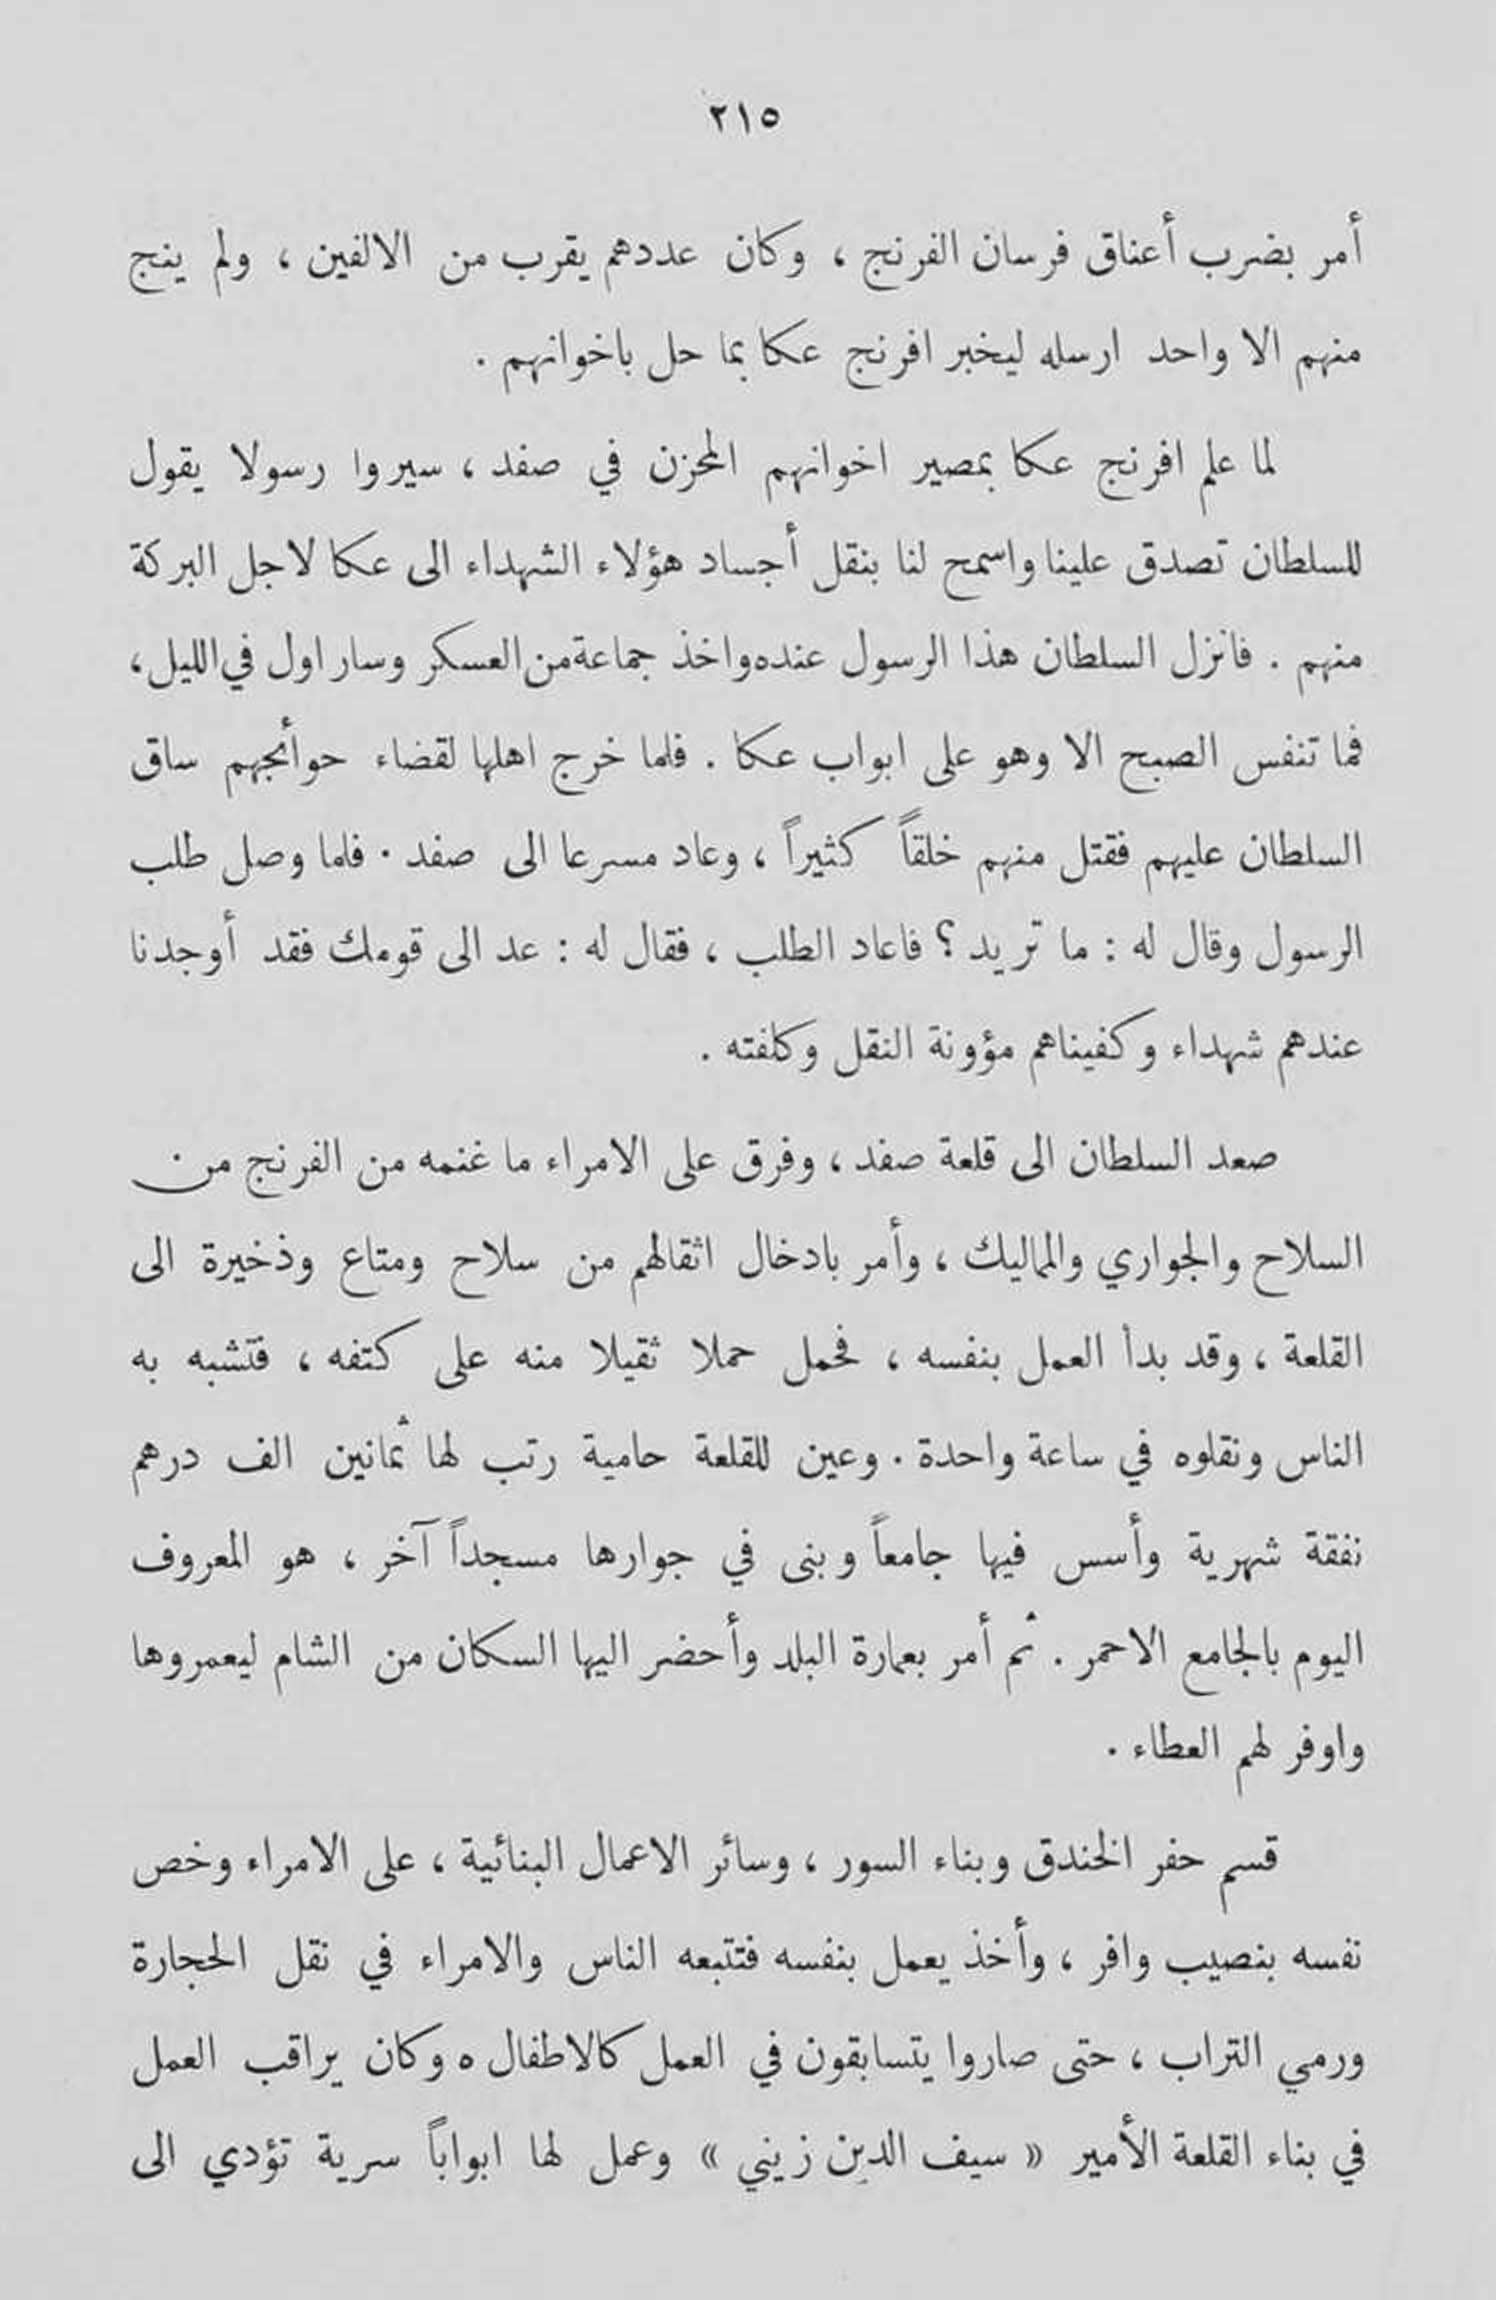 ٢١٥
أمر بضرب أعناق فرسان الفرنج ، وكان عددهم يقرب من الالفين ، ولم ينج
منهم الا واحد ارسله ليخبر افرنج عكا بما حل باخوانهم .
لما علم افرنج عكا بمصير اخوانهم المحزن في صفد ، سيروا رسولا يقول
للسلطان تصدق علينا واسمح لنا بنقل أجساد هؤلاء الشهداء الى عكا لاجل البركة
منهم . فانزل السلطان هذا الرسول عنده واخذ جماعة من العسكر وسار اول في الليل ،
فما تنفس الصبح الا وهو على ابواب عكا . فلما خرج اهلها لقضاء حوأئجهم ساق
السلطان عليهم فقتل منهم خلقاً كثيراً ، وعاد مسرعا الى صفد . فلما وصل طلب
الرسول وقال له : ما تريد ؟ فاعاد الطلب ، فقال له : عد الى قومك فقد أوجدنا
عندهم شهداء وكفيناهم مؤونة النقل وكلفته .
صعد السلطان الى قلعة صفد ، وفرق على الامراء ما غنمه من الفرنج من
السلاح والجواري والمماليك ، وأمر بادخال اثقالهم من سلاح ومتاع وذخيرة الى
القلعة ، وقد بدأ العمل بنفسه ، فحمل حملا ثقيلا منه على كتفه ، فتشبه به
الناس ونقلوه في ساعة واحدة . وعين للقلعة حامية رتب لها ثمانين الف درهم
نفقة شهرية وأسس فيها جامعاً وبنى في جوارها مسجداً آخر ، هو المعروف
اليوم بالجامع الاحمر . ثم أمر بعمارة البلد وأحضر اليها السكان من الشام ليعمروها
واوفر لهم العطاء .
قسم حفر الخندق وبناء السور ، وسائر الاعمال البنائية ، على الامراء وخص
نفسه بنصيب وافر ، وأخذ يعمل بنفسه فتتبعه الناس والامراء في نقل الحجارة
ورمي التراب ، حتى صاروا يتسابقون في العمل كالاطفال ه وكان يراقب العمل
في بناء القلعة الأمير « سيف الدين زيني » وعمل لها ابواباً سرية تؤدي الى